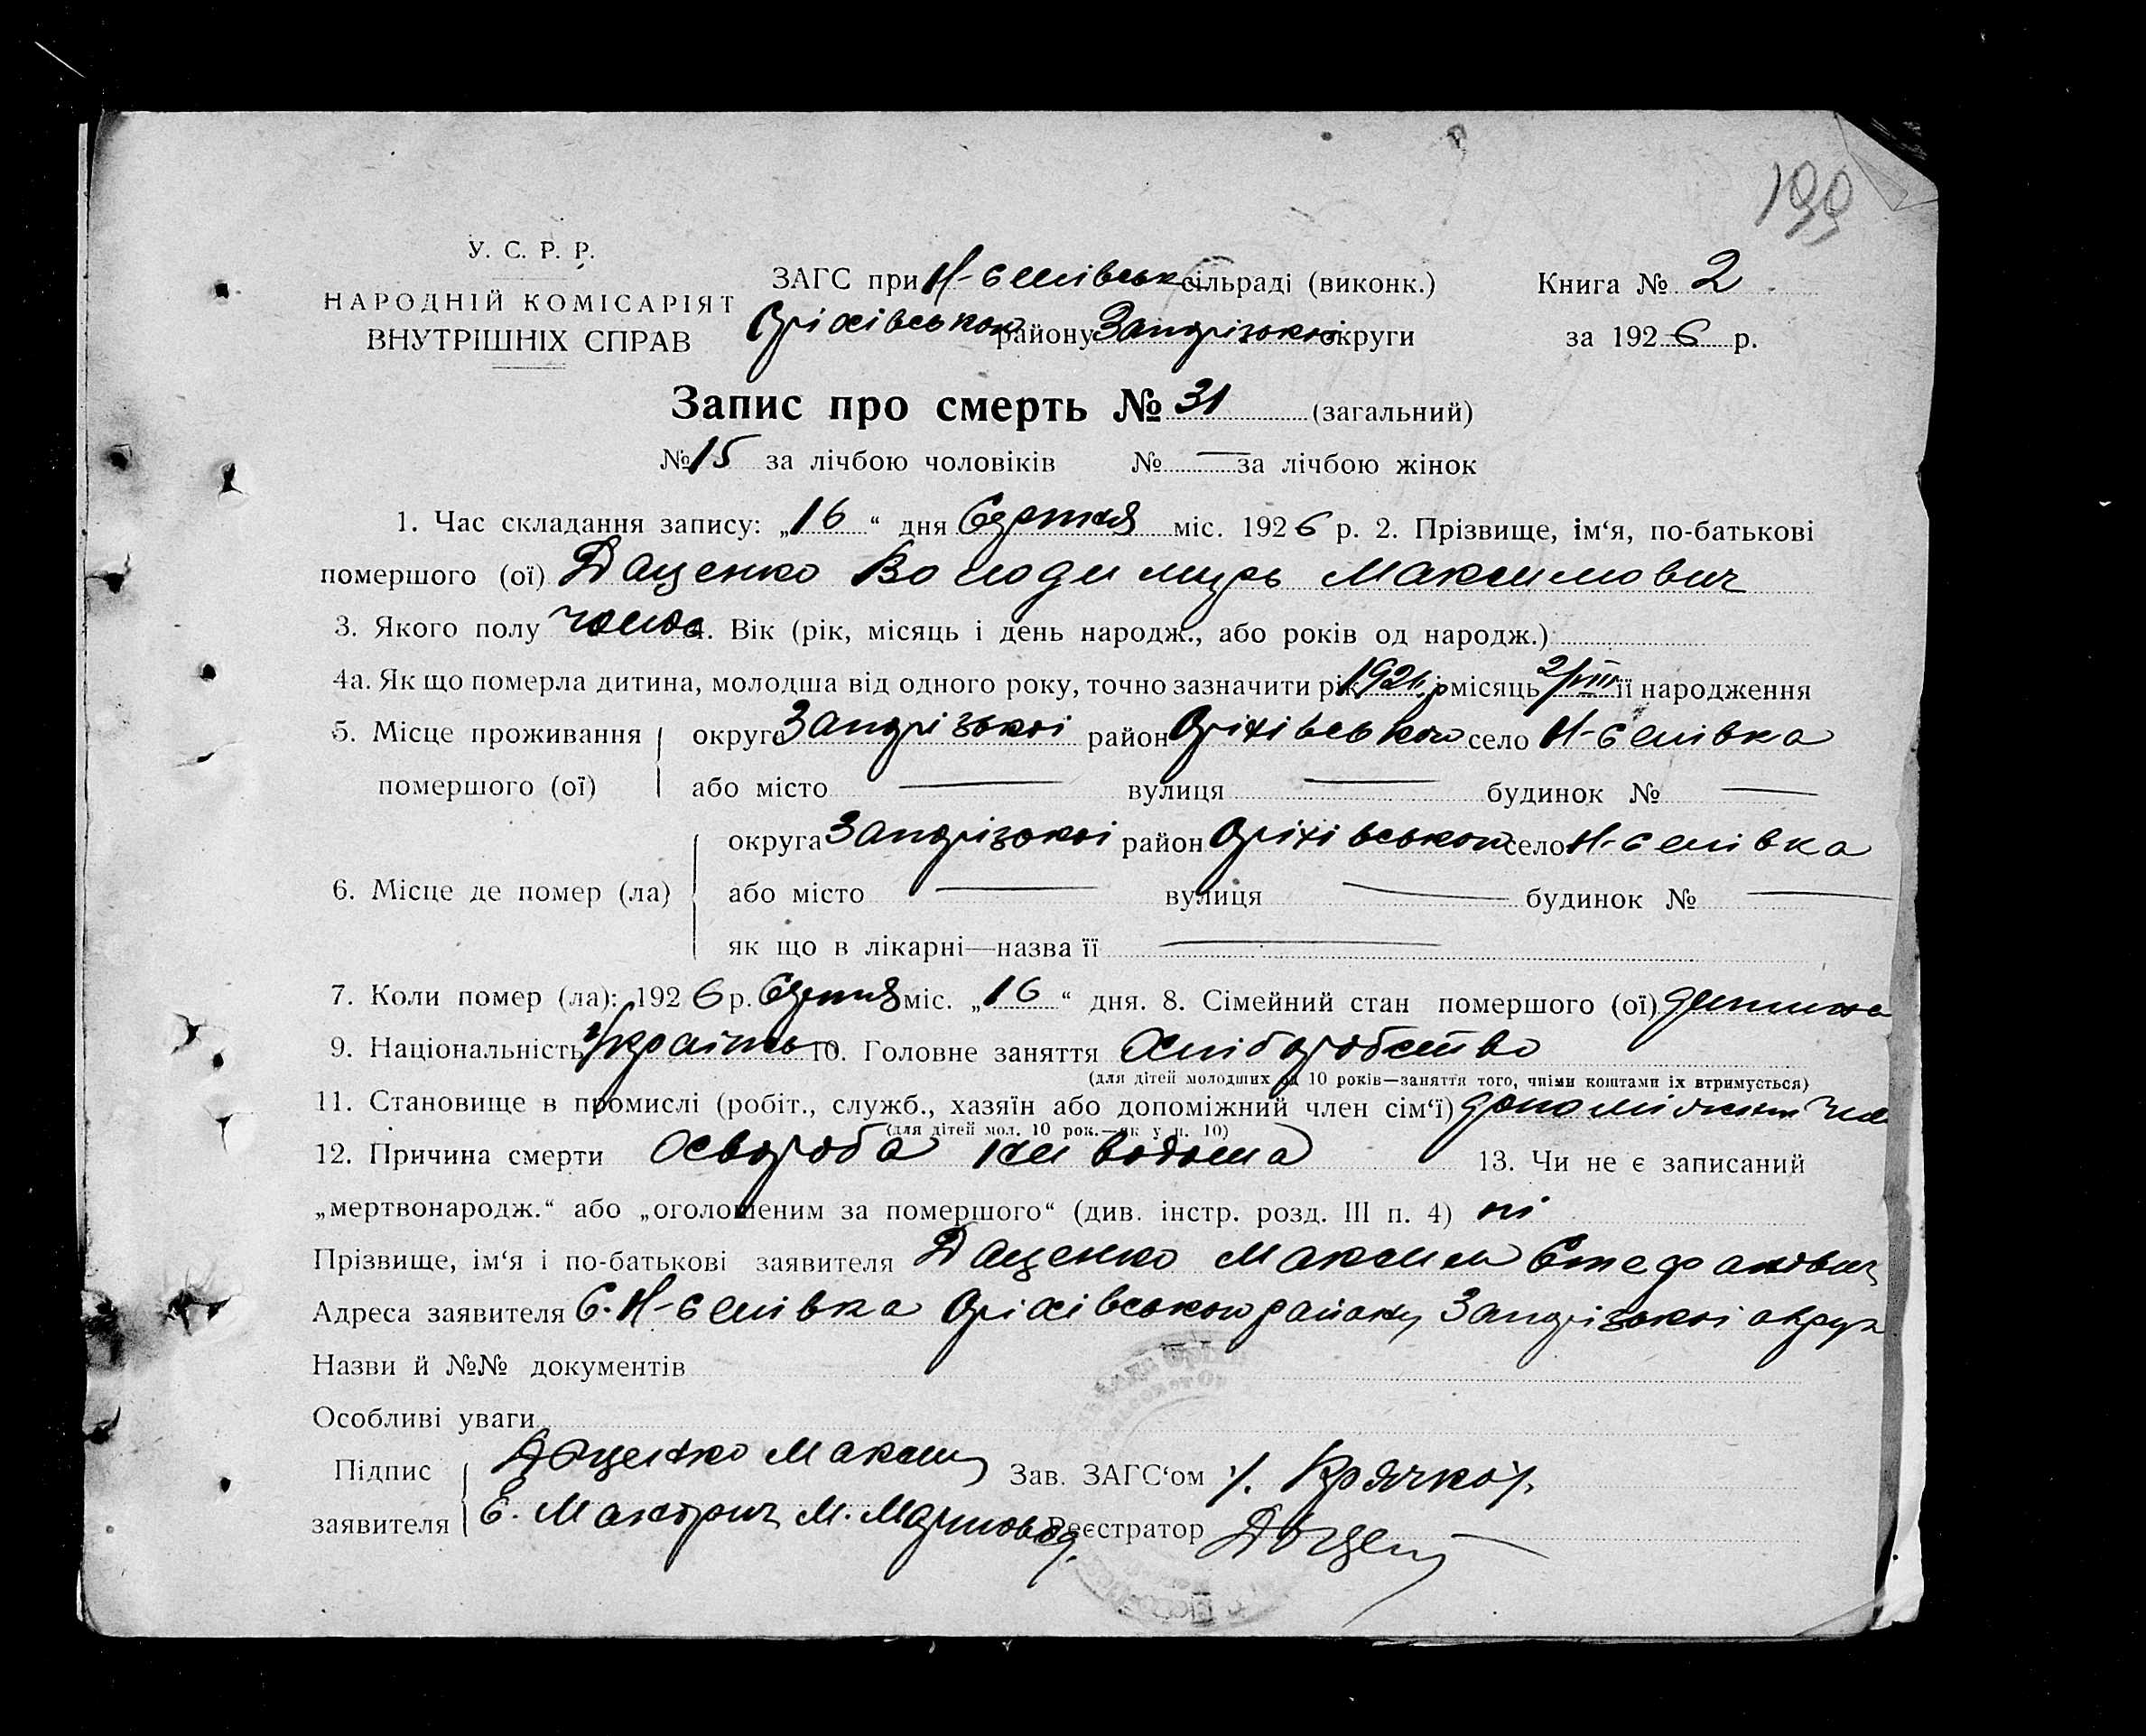 199
У. С. Р. Р.
НАРОДНІЙ КОМІСАРІЯТ
ВНУТРІШНІХ СПРАВ
ЗАГС при Н-Єлнівськ сільраді (виконк.)
Оріхівського району Запорізької округи
Книга № 2
за 1926 р.
Запис про смерть № 31 (загальний)
№ 15 за лічбою чоловіків № — за лічбою жінок
1. Час складання запису: „16“ дня Серпня міс. 1926 р. 2. Прізвище, ім‘я, по-батькові
помершого (ої) Даценко Володимирь Максимович
3. Якого полу 4. Вік (рік, місяць і день народж., або років од народж.)
4а. Як що померла дитина, молодша від одного року, точно зазначити рік місяць 2/VIII її народження
5. Місце проживання округа Запорізької район Оріхівського село
помершого (ої) або місто — вулиця — будинок № —
округа Запорізької район Оріхівського село
6. Місце де помер (ла) або місто — вулиця — будинок № —
як що в лікарні—назва її —
7. Коли помер (ла): 1926 р. Серпня міс. „16“ дня. 8. Сімейний стан помершого (ої) дитина
9. Національність 10. Головне заняття Хліборобство
(для дітей молодших од 10 років—заняття того, чиїми коштами їх втримується)
11. Становище в промислі (робіт., служб., хазяїн або допоміжний член сім‘ї)
(для дітей мол. 10 рок.—як у п. 10)
12. Причина смерти 13. Чи не є записаний
„мертвонародж.“ або „оголошеним за помершого“ (див. інстр. розд. III п. 4) ні
Прізвище, ім‘я і по-батькові заявителя Даценко Максим Стефанович
Адреса заявителя С. Оріхівського району Запорізької округ
Назви й №№ документів
Особливі уваги
Підпис Даценко Максим Зав. ЗАГС‘ом Крячко
заявителя Реєстратор